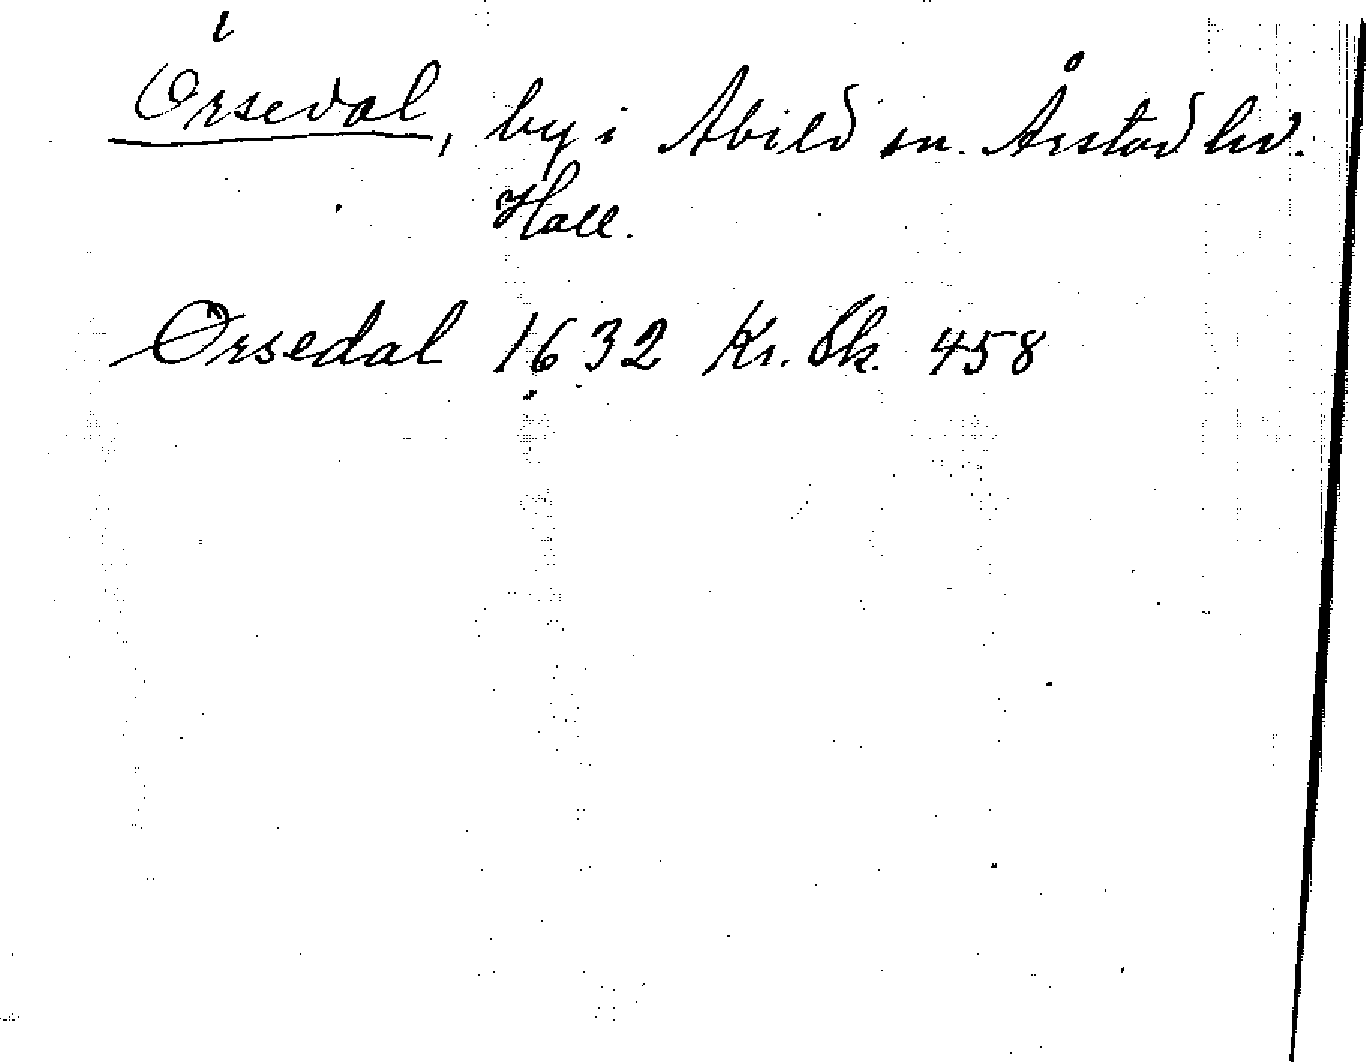 Örsedal, by i Abild sn. Årstad hd.
Hall.
Ørsedal 1632 Kr. Sk. 458